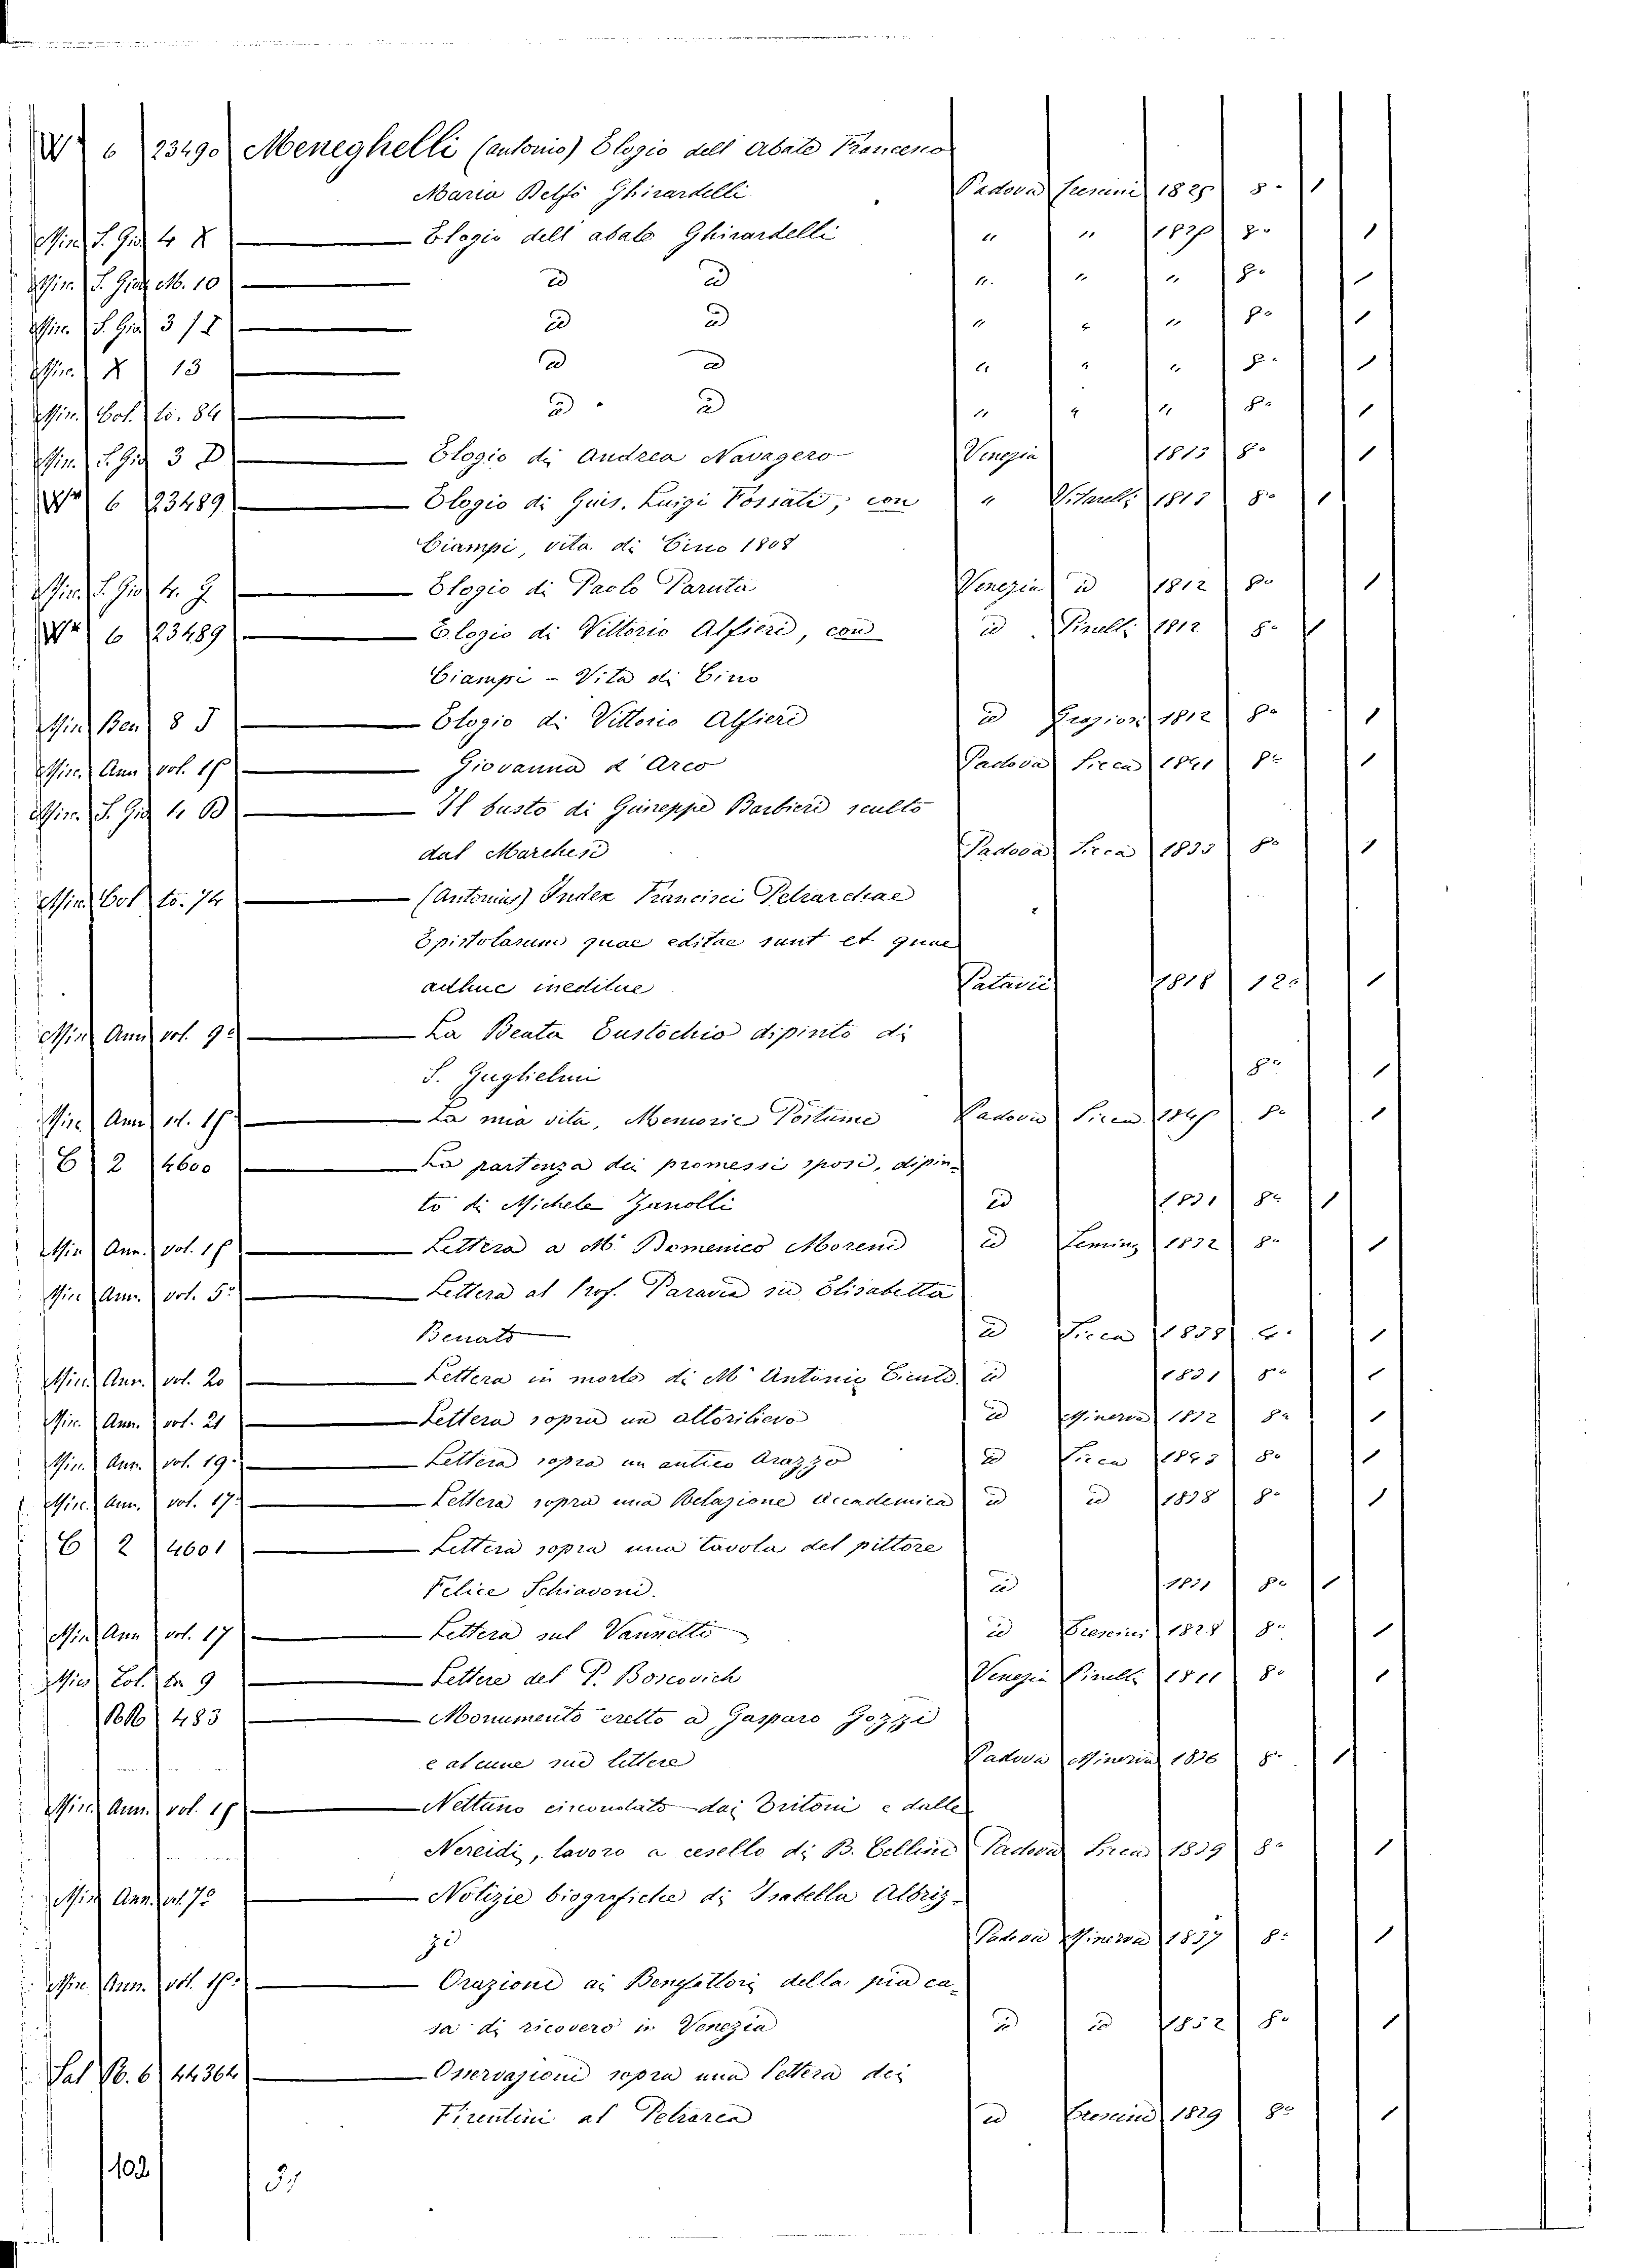 6 23490 Meneghelli (Antonio) Elogio dell Abate Francesco
Maria Belfò Ghirardelli Padova Crescini 1829 8°
Min. S. Gio 4 X — Elogio dell abate Ghirardelli " " 1820 8° 1
Min. S. Gio M. 10 — id id " " " 8° 1
Min. S. Gio 3 — id id " " " 8° 1
Min. X 13 — id id " " " 8° 1
Min. Col. to. 84 — id id " " " 8° 1
Min. S. Gio 3 D — Elogio di Andrea Navagero Venezia 1813 8° 1
6 23489 — Elogio di Guis. Luigi Fossati, con " Vitarelli 1813 8° 1
Ciampi, vita di Cino 1808
Min. S. Gio 4. J — Elogio di Paolo Paruta Venezia id 1812 8° 1
6 23489 — Elogio di Vittorio Alfieri, con id Pinelli 1812 8° 1
Ciampi - Vita di Cino
Min Ben 8 J — Elogio di Vittorio Alfieri id Graziosi 1812 8° 1
Min. Ann vol. 18 — Giovanna d'Arco Padova Sicca 1841 8° 1
Min. S. Gio 4 B — Il busto di Giuseppe Barbieri sculto
dal Marchesi Padova Sicca 1833 8° 1
Min Col to. 74 — (Antonius) Index Francisci Petrarchae
Epistolarum quae editae sunt et quae
adhuc ineditae Patavii 1818 12° 1
Min Ann vol. 9° — La Beata Eustochio dipinto di
S. Guglielmi 8° 1
Min Ann vol. 18 — La mia vita, Memorie Postume Padova Sicca 8° 1
C 2 4600 — La partenza dei promessi sposi, dipin-
to di Michele Zanolli id 1831 8° 1
Min Ann. vol. 18 — Lettera a M Domenico Moreni id 1832 8° 1
Min Ann. vol. 5° — Lettera al Prof. Paravia su Elisabetta
Benato id Sicca 1838 1
Min Ann. vol. 20 — Lettera in morte di M Antonio id 1831 8° 1
Min. Ann. vol. 21 — Lettera sopra un altorilievo id Minerva 1832 8° 1
Min. Ann. vol. 19. — Lettera sopra un antico Arazzo id Sicca 1843 8° 1
Min. Ann. vol. 17. — Lettera sopra una Relazione Accademica id id 1838 8° 1
C 2 4601 — Lettera sopra una tavola del pittore
Felice Schiavoni. id 1831 8° 1
Min Ann vol. 17 — Lettera sul Vannetti id Crescini 1828 8° 1
Min Col. to. 9 — Lettere del P. Boscovich Venezia Pinelli 1811 8° 1
483 — Monumento eretto a Gasparo Gozzi
e alcune sue lettere Padova Minerva 1836 8° 1
Min Ann. vol. 18 — Nettuno circondato dai Tritoni e dalle
Nereidi, lavoro a cesello di B. Cellini Padova Sicca 1839 8° 1
Min Ann. vol. 7° — Notizie biografiche di Isabella Albriz-
zi Padova Minerva 1837 8° 1
Min Ann. vol. 18. — Orazione ai Benefattori della pia ca-
sa di ricovero in Venezia id id 1852 8° 1
Sal B. 6 44364 — Osservazioni sopra una lettera dei
Fiorentini al Petrarca id Crescini 1829 8° 1
102 31